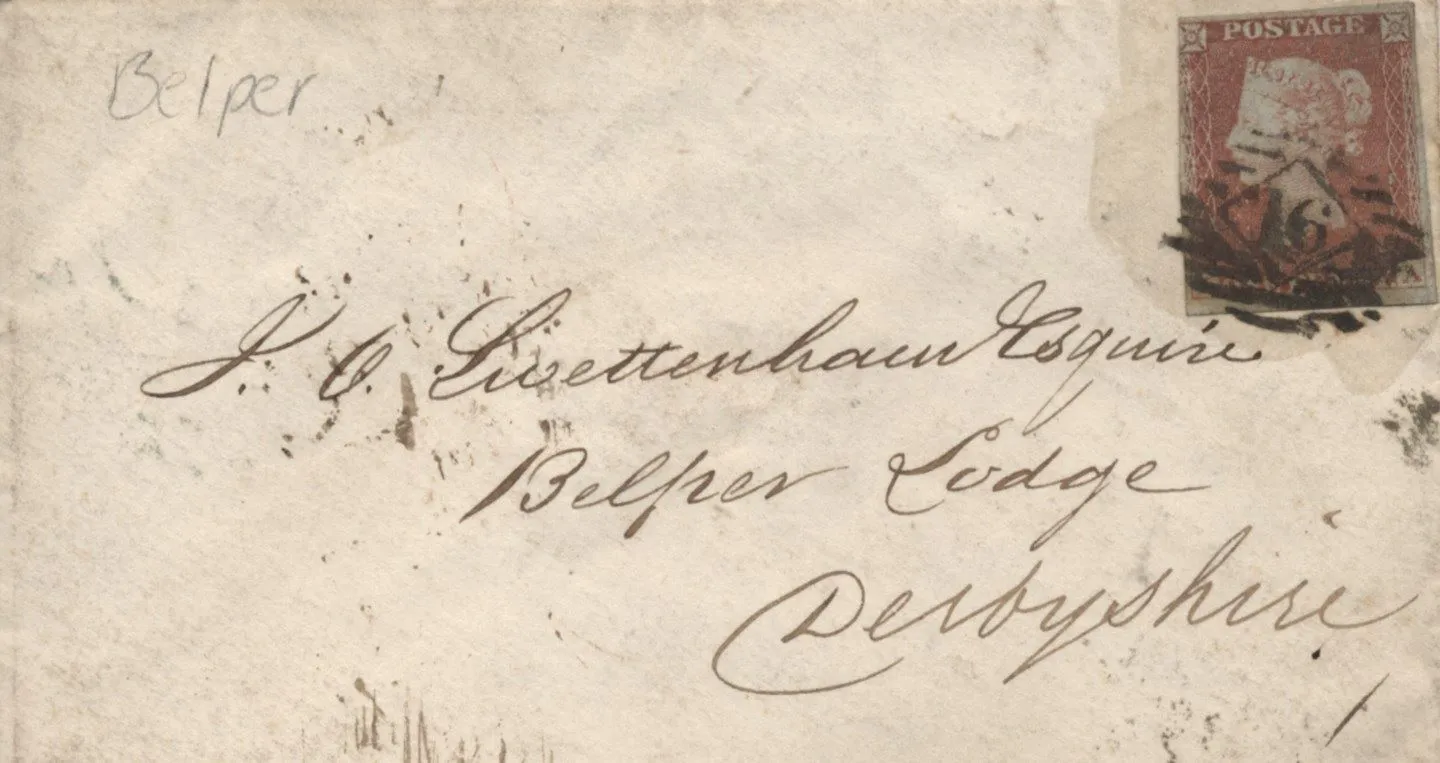 Belper
POSTAGE
16
A
J. O. Swettenham Esquire
Belper Lodge
Derbyshire